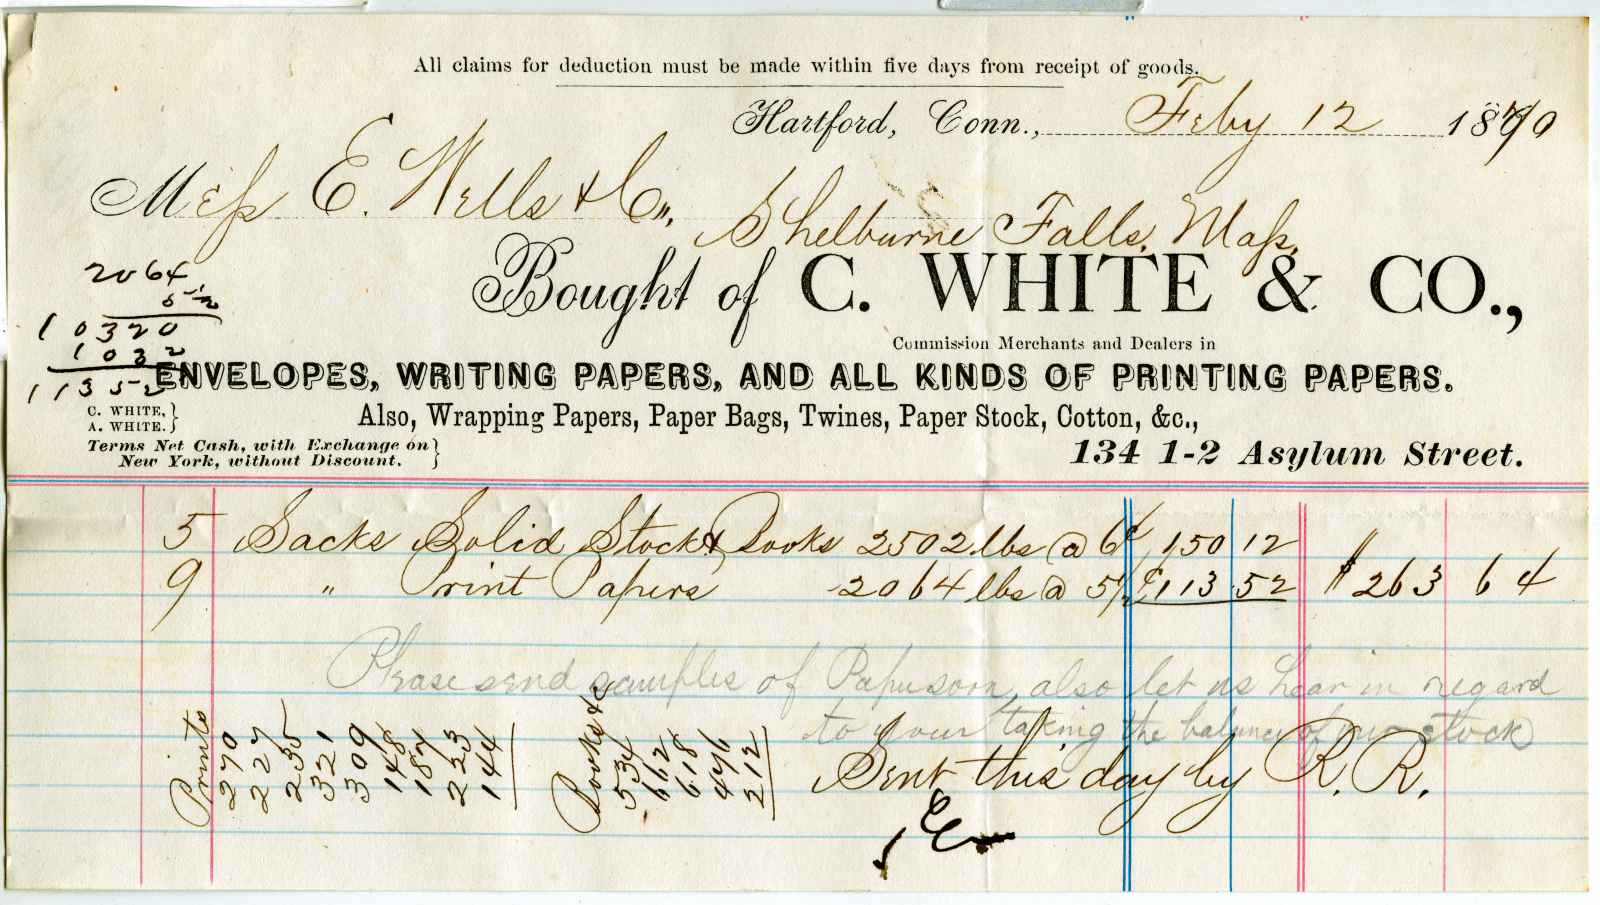 All claims for deduction must be made within five days from receipt of goods.
Hartford, Conn., Feby 12 1870
Mess E. Wells & Co., Shelburne Falls, Mass.
Bought of C. WHITE & CO.,
Commission Merchants and Dealers in
ENVELOPES, WRITING PAPERS, AND ALL KINDS OF PRINTING PAPERS.
Also, Wrapping Papers, Paper Bags, Twines, Paper Stock, Cotton, &c.,
134 1-2 Asylum Street.
2064
5 1/2
10320
1032
11352
C. WHITE,
A. WHITE.
Terms Net Cash, with Exchange on
New York, without Discount.
5 Sacks Solid Stock & Books 2502 lbs @ 6¢ 150 12 "
9 " Print Papers 2064 lbs @ 5 1/2 ¢ 113 52 $263 64
Please send samples of Paper soon, also let us hear in regard
to your taking the balance of our stock
Sent this day by R. R.
Prints
270
227
235
321
309
148
187
223
144
Books &c
534
662
618
476
212